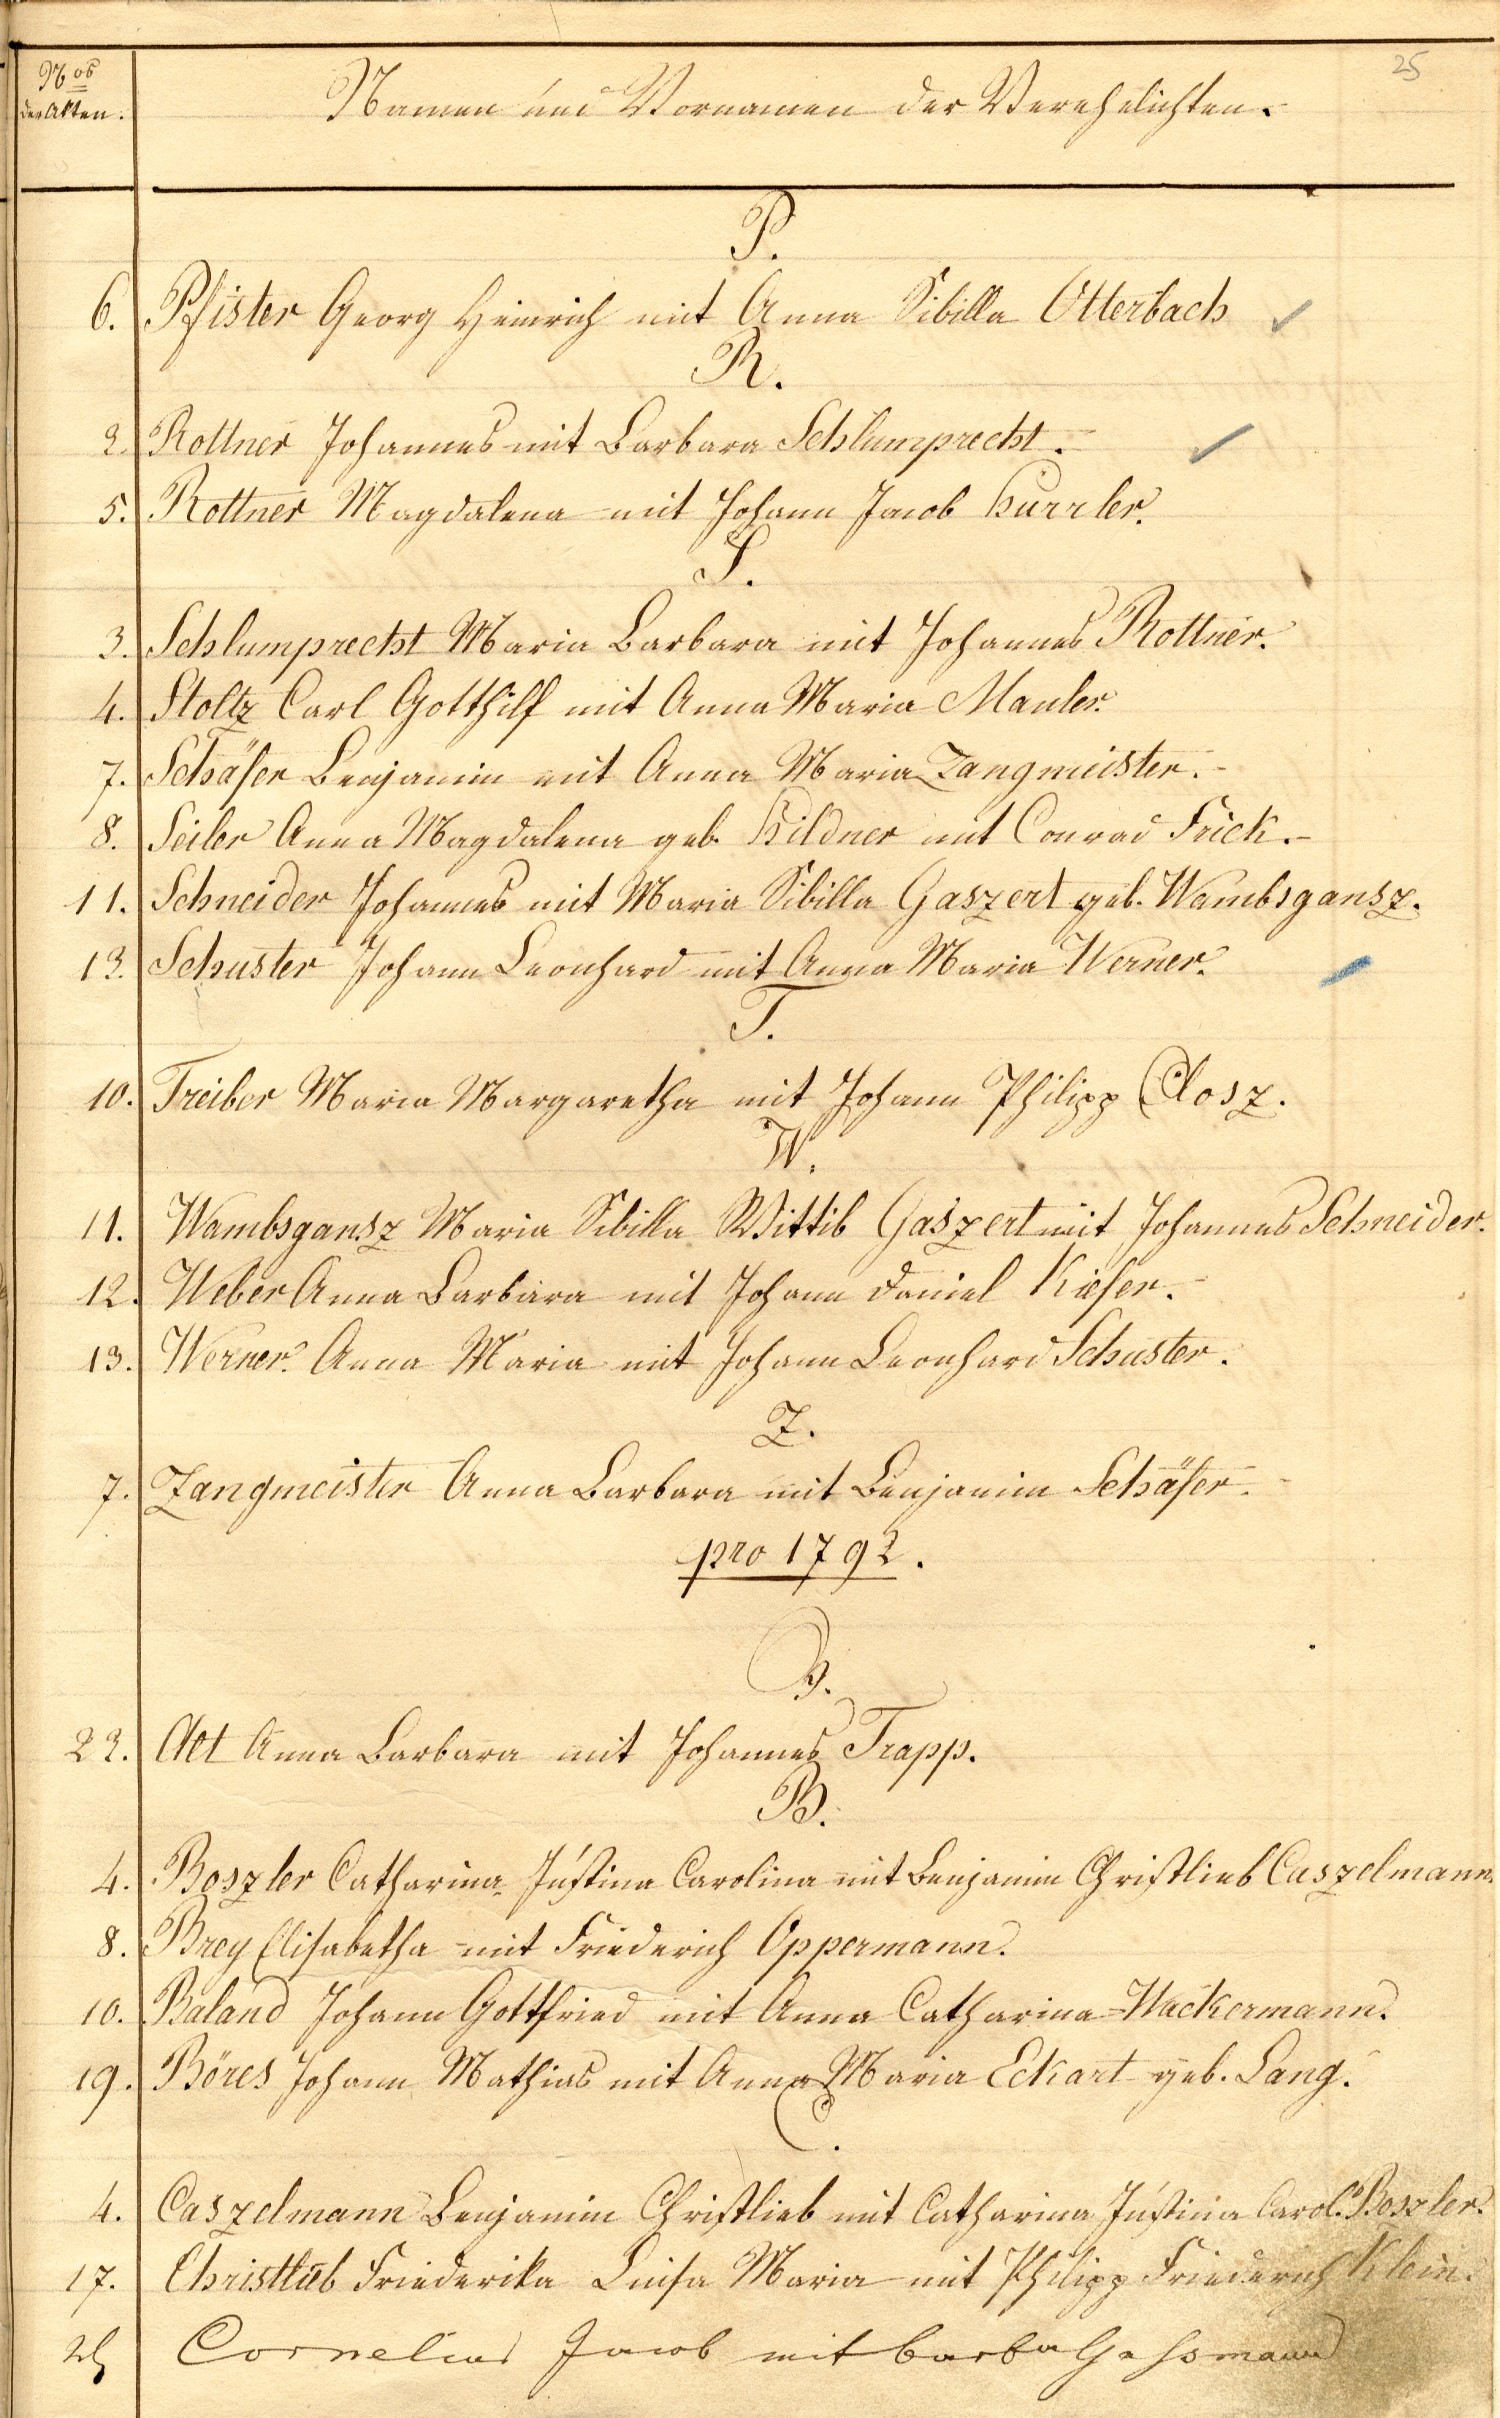 25
Nos
der Akten.
Namen und Vornamen der Verehelichten.
P.
6. Pfister Georg Heinrich mit Anna Sibilla Otterbach
R.
2. Rottner Johannes mit Barbara Schlumprecht.
5. Rottner Magdalena mit Johann Jacob
S.
3. Schlumprecht Maria Barbara mit Johannes Rottner.
4. Stoltz Carl Gotthilf mit Anna Maria Mauler.
7. Schäfer Benjamin mit Anna Maria Zangmeister.
8. Seiler Anna Magdalena geb. Hildner mit Conrad Frick.
11. Schneider Johannes mit Maria Sibilla Gaszert geb. Wambsgansz.
13. Schuster Johann Leonhard mit Anna Maria Werner.
T.
10. Treiber Maria Margaretha mit Johann Philipp Closz.
W.
11. Wambsgansz Maria Sibilla Wittib Gaszert mit Johannes Schneider.
12. Weber Anna Barbara mit Johann Daniel Kiefer.
13. Werner Anna Maria mit Johann Leonhard Schuster.
Z.
7. Zangmeister Anna Barbara mit Benjamin Schäfer.
pro 1792.
22. Alt Anna Barbara mit Johannes Trapp.
B.
4. Boszler Catharina Justina Carolina mit Benjamin Christlieb Caszelmann.
8. Brey Elisabetha mit Friederich Oppermann.
10. Baland Johann Gottfried mit Anna Catharina Wackermann.
19. Böres Johann Mathias mit Anna Maria Eckart geb. Lang.
C.
4. Caszelmann Benjamin Christlieb mit Catharina Justina Carol. Boszler.
17. Christlieb Friederika Luisa Maria mit Philipp Friederich Klein.
Cornelius Jacob mit Barba Gassmann